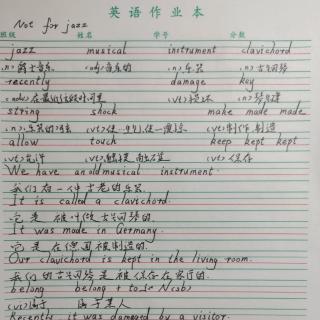 英语作业本
Not for jazz
班级 姓名 学号 分数
jazz musical instrument clavichord
(n)爵士音乐 (adj)音乐的 (n)乐器 (n)古钢琴
recently damage key
(adv)在最近这段时间里 (vt)损坏 (n)琴键
string shock make made made
(n)(乐器的)弦 (vt)使…… (vt)制作,制造
allow touch keep kept kept
(vt)允许 (vt)触摸 (vt)保存
We have an old musical instrument.
我们有一件古老的乐器.
It is called a clavichord.
它是被叫做古钢琴的.
It was made in Germany.
它是在德国被制造的.
Our clavichord is kept in the living room.
我们的古钢琴是被保存在客厅的.
belong belong + to sb N(sb)
(vi)属于 属于某人
Recently it was damaged by a visitor.